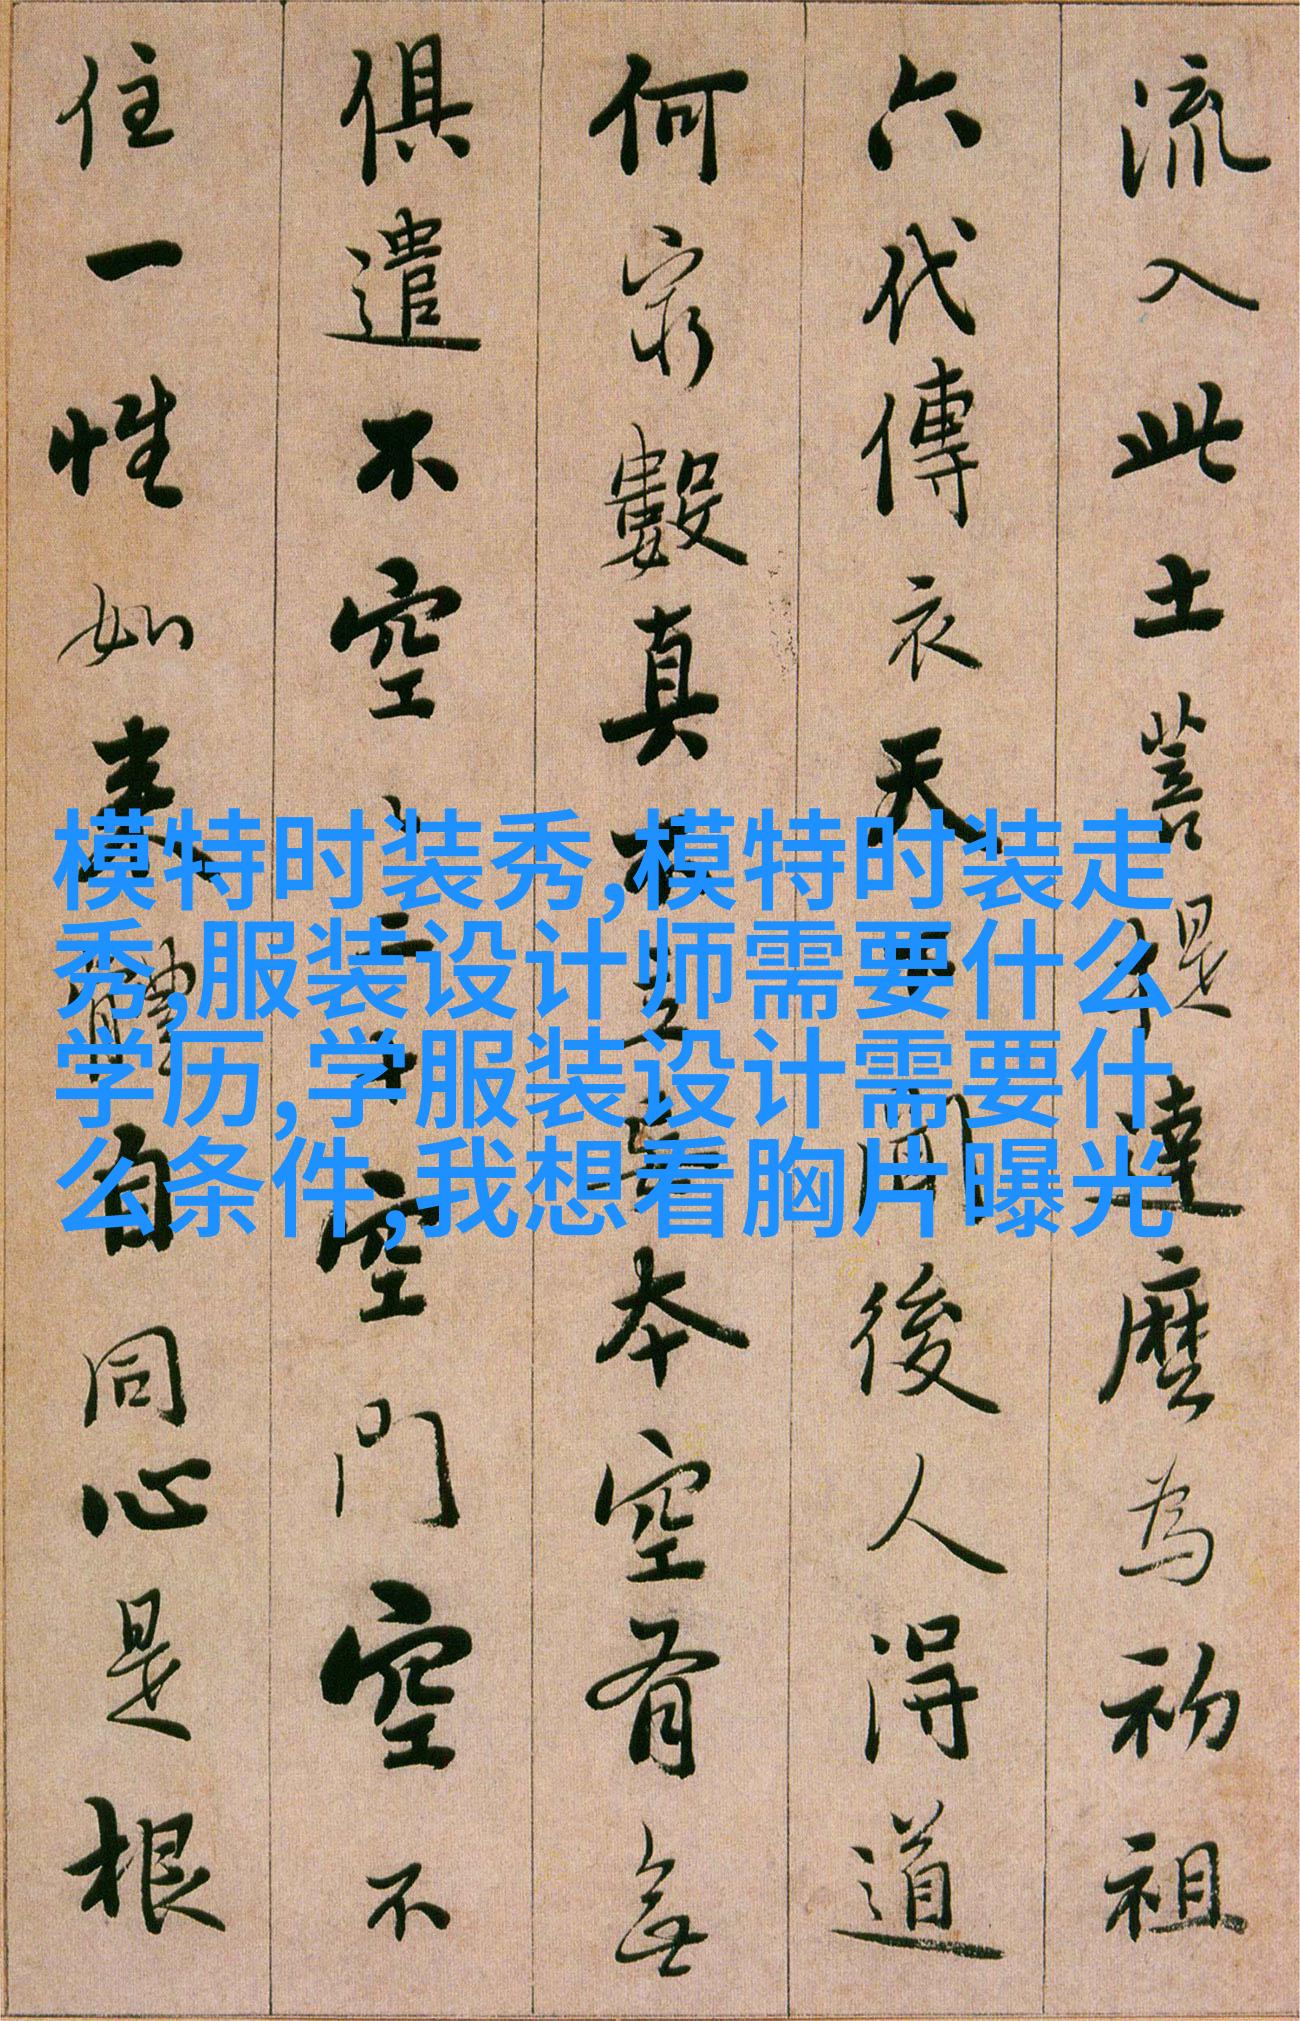 流入此土菩提達麼為初祖
六代傳衣天下聞後人得道
何窮數真不立妄本空有無
俱遣不空々二十空門空不
住一性如来體自同心是根
模特时装秀,模特时装走
秀,服装设计师需要什么
学历,学服装设计需要什
么条件,我想看胸片曝光